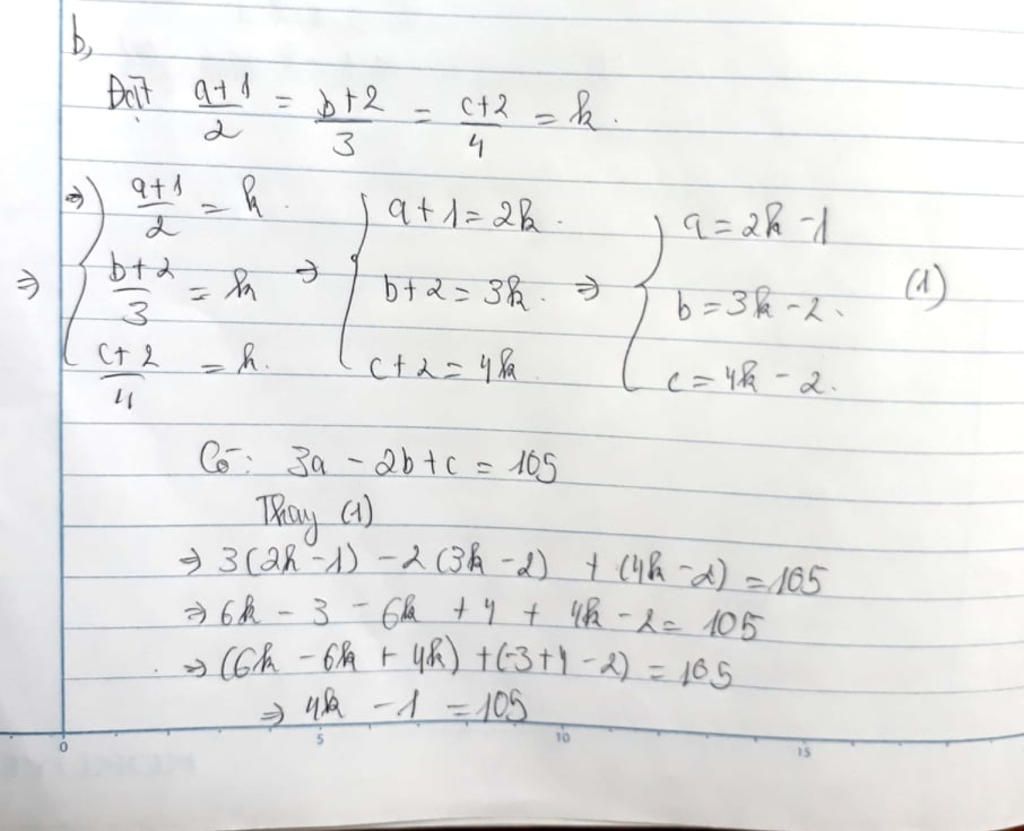 b,
Đặt a+1/2 = b+2/3 = c+2/4 = k.
⇒ { a+1/2 = k. ⇒ { a+1 = 2k. ⇒ { a = 2k - 1
⇒ b+2/3 = k b+2 = 3k. b = 3k - 2. (1)
c+2/4 = k. c+2 = 4k c = 4k - 2.
Có: 3a - 2b + c = 105
Thay (1)
⇒ 3(2k - 1) - 2(3k - 2) + (4k - 2) = 105
⇒ 6k - 3 - 6k + 4 + 4k - 2 = 105
⇒ (6k - 6k + 4k) + (-3 + 4 - 2) = 105
⇒ 4k - 1 = 105
0 5 10 15